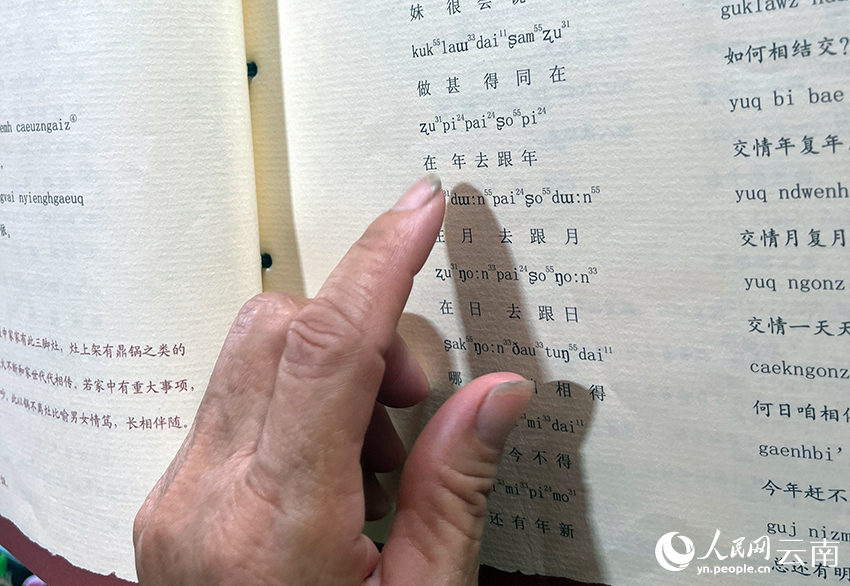 emh caeuzngaiz④
gvai nyienghgaeuq
家有此三脚灶，灶上架有鼎锅之类的
火不断和家世代代相传。若家中有重大事项，
此以锅不离灶比喻男女情笃，长相伴随。
妹 很
kuk⁵⁵laɯ³³dai¹¹ʂam⁵⁵ʐu³¹
做 甚 得 同 在
ʐu³¹pi²⁴pai²⁴ʂo⁵⁵pi²⁴
在 年 去 跟 年
dɯːn⁵⁵pai²⁴ʂo⁵⁵dɯːn⁵⁵
月 去 跟 月
ʐu³¹ŋoːn³³pai²⁴ʂo⁵⁵ŋoːn³³
在 日 去 跟 日
ʂak⁵⁵ŋoːn³³ðau³³tuŋ⁵⁵dai¹¹
哪 相 得
mi³³dai¹¹
今 不 得
mi³³pi²⁴mo³¹
还 有 年 新
guklawz
如何相结交？
yuq bi bae
交情年复年，
yuq ndwenh
交情月复月
yuq ngonz
交情一天天
caekngonz
何日咱相
gaenhbi'
今年赶不
guj nizm
总还有明
人民网 云南
yn.people.cn